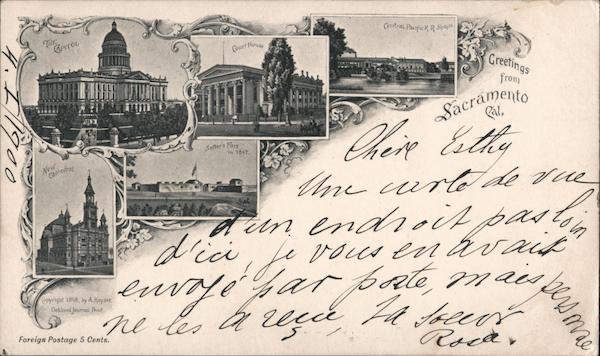 The Capitol
Court House
Central Pacific R. R. Shops
Greetings
from
Sacramento
Cal.
Sutter's Fort
in 1847.
New
Cathedral
Copyright 1898, by A. Kayser
Oakland
Foreign Postage 5 Cents.
Chère Esthy
Une carte de vue
d'un endroit pas loin
d'ici, je vous en avait
envoyé par poste, mais
ne les a reçu, ta soeur
Rosa